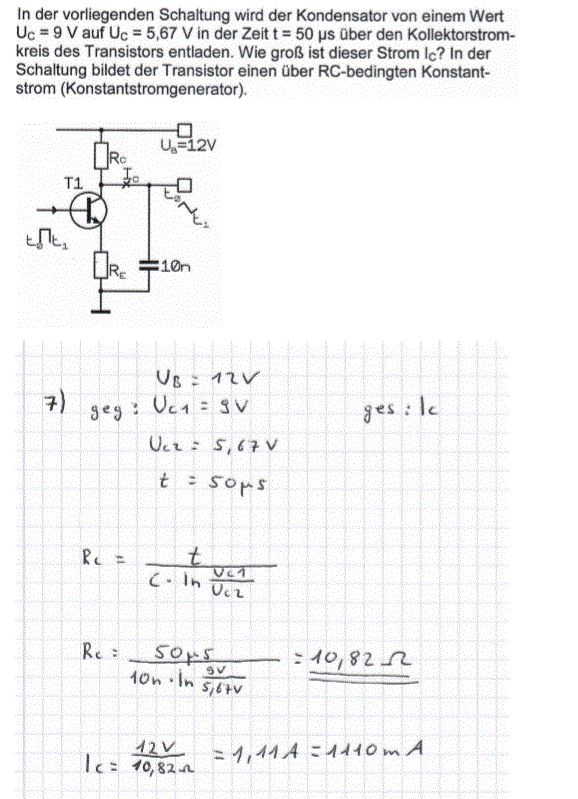 In der vorliegenden Schaltung wird der Kondensator von einem Wert
UC = 9 V auf UC = 5,67 V in der Zeit t = 50 µs über den Kollektorstrom-
kreis des Transistors entladen. Wie groß ist dieser Strom IC? In der
Schaltung bildet der Transistor einen über RC-bedingten Konstant-
strom (Konstantstromgenerator).
UB=12V
RC
T1 IC
t0 t1
t0 t1
RE 10n
UB = 12V
7) geg : UC1 = 9V ges : Ic
UC2 = 5,67V
t = 50µs
Rc = t
C · ln UC1
UC2
Rc = 50µs = 10,82 Ω
10n · ln 9V
5,67V
Ic = 12V = 1,11A = 1110mA
10,82Ω